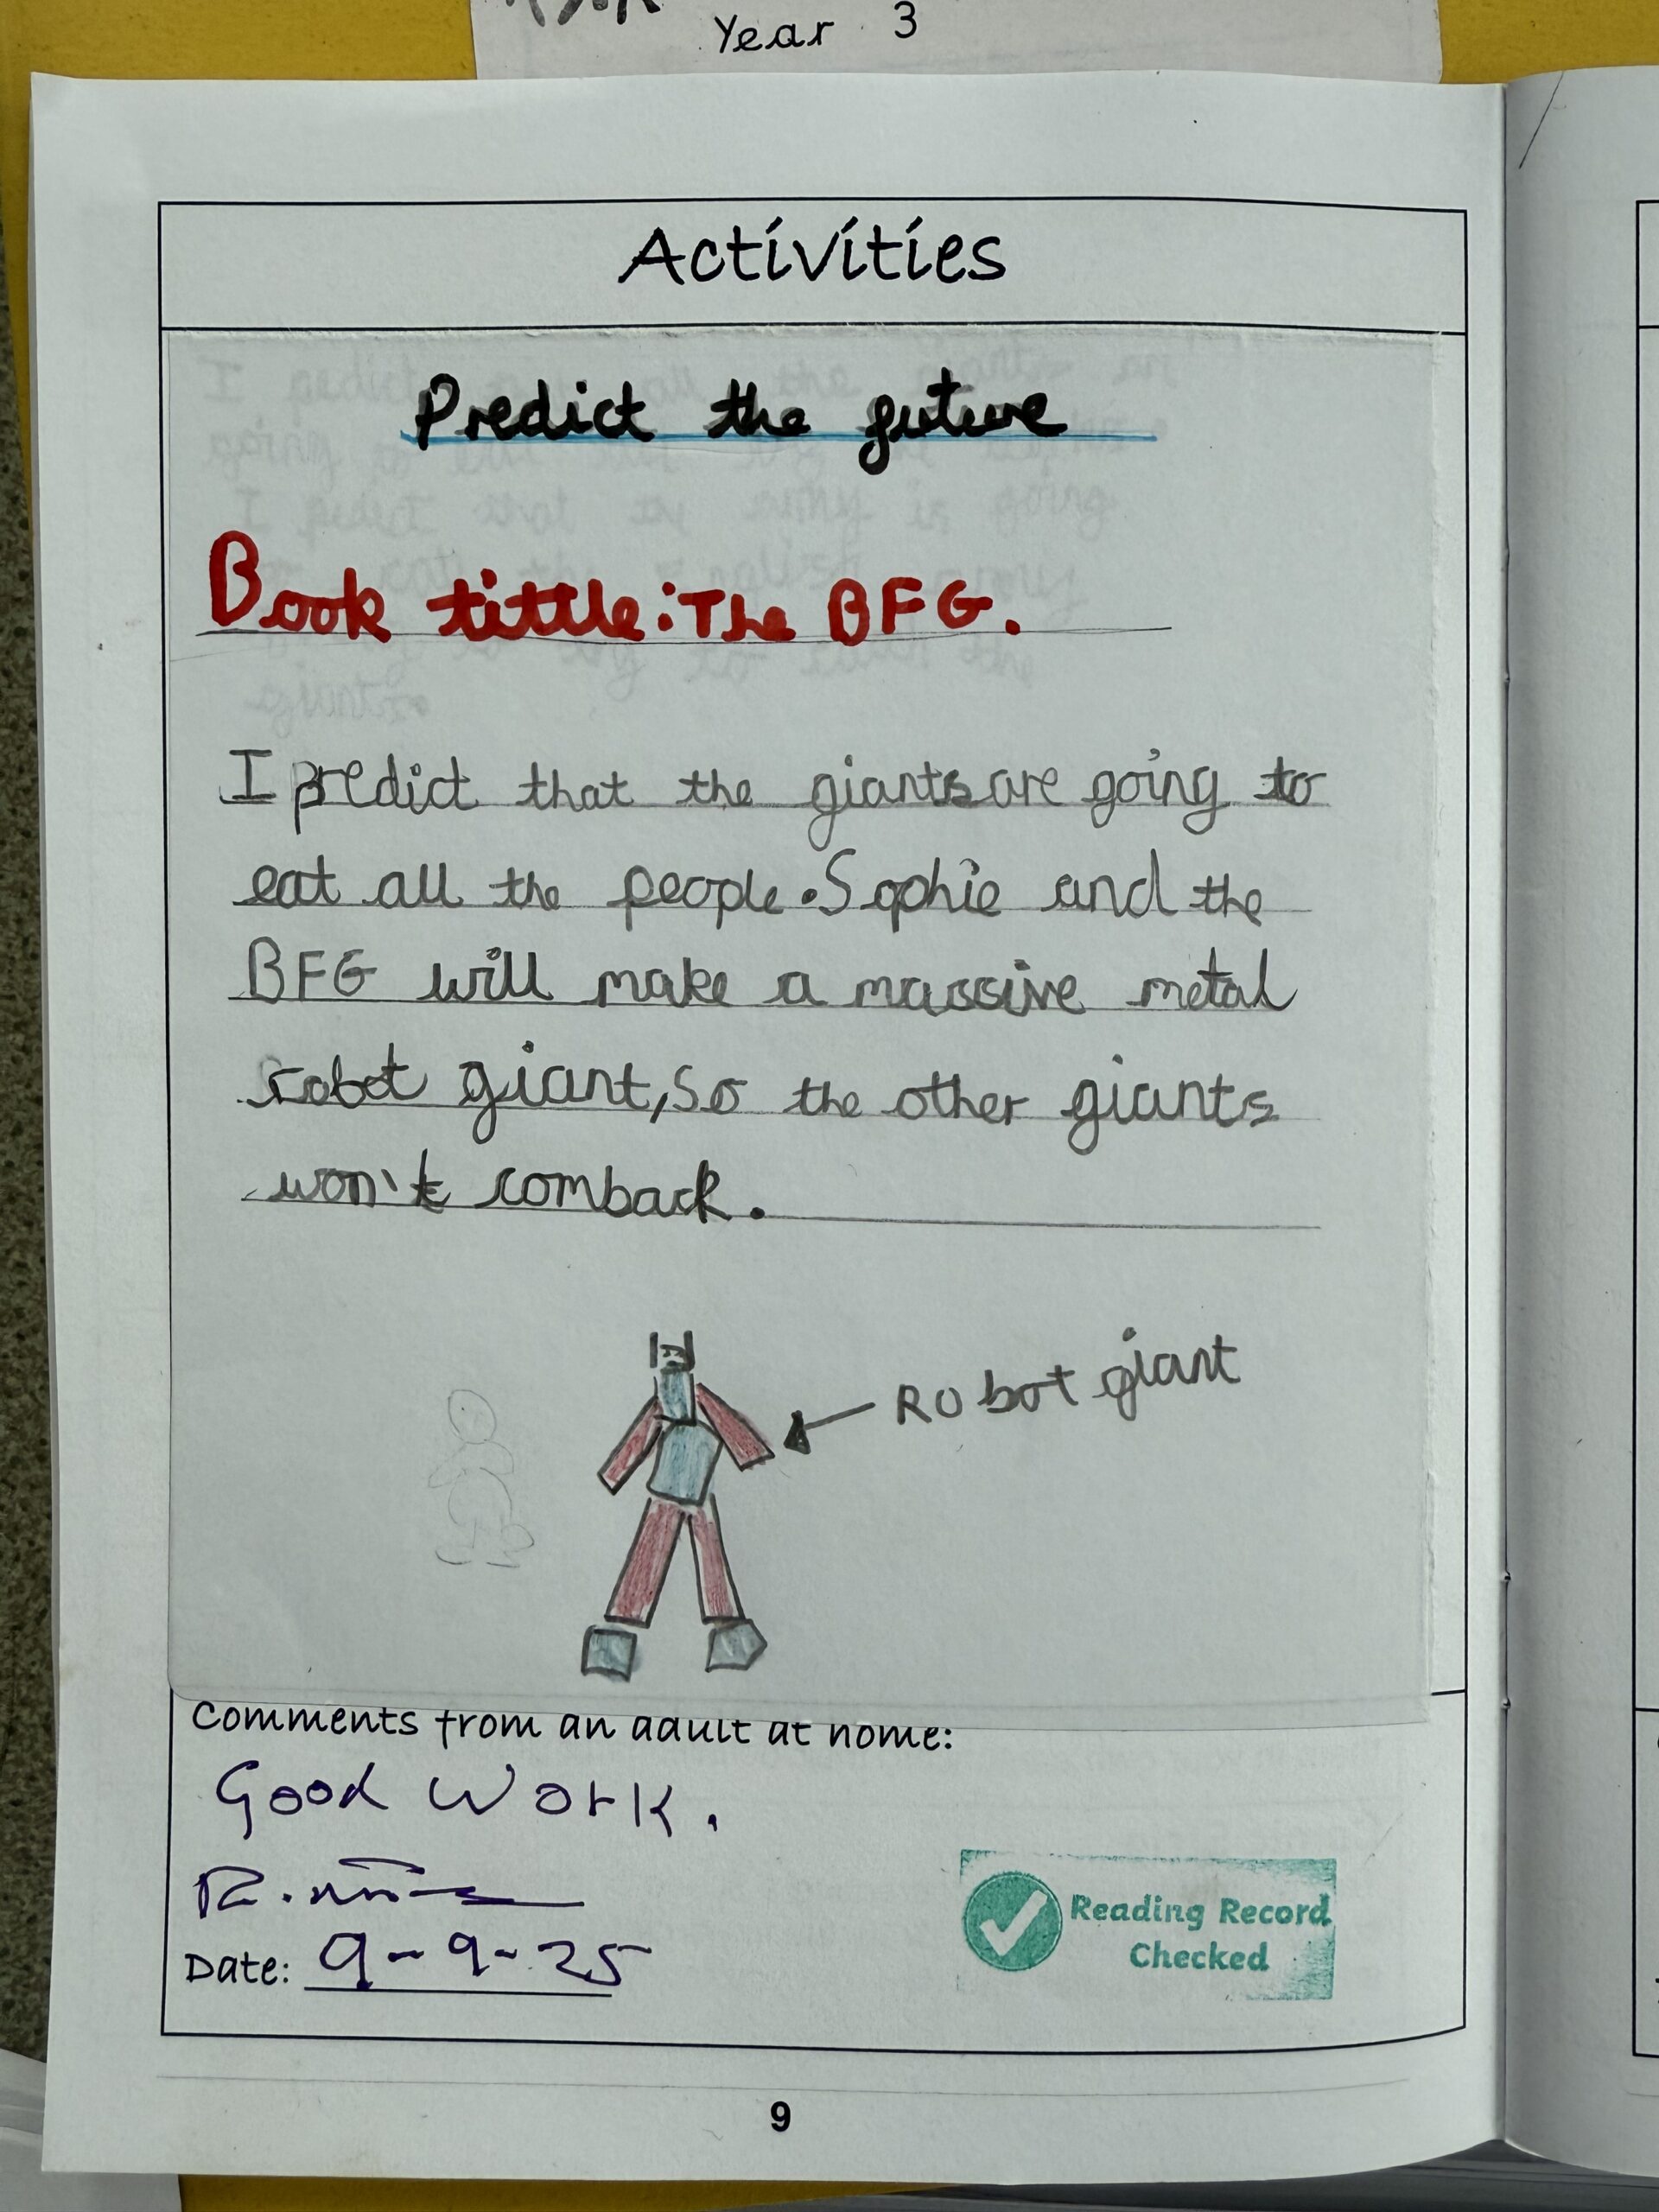 Year 3
Activities
Predict the future
Book tittle: The BFG.
I predict that the giants are going to
eat all the people. Sophie and the
BFG will make a massive metal
robot giant, so the other giants
won't comback.
Robot giant
Comments from an adult at home:
Good Work.
R.
Date: 9-9-25
Reading Record
Checked
9